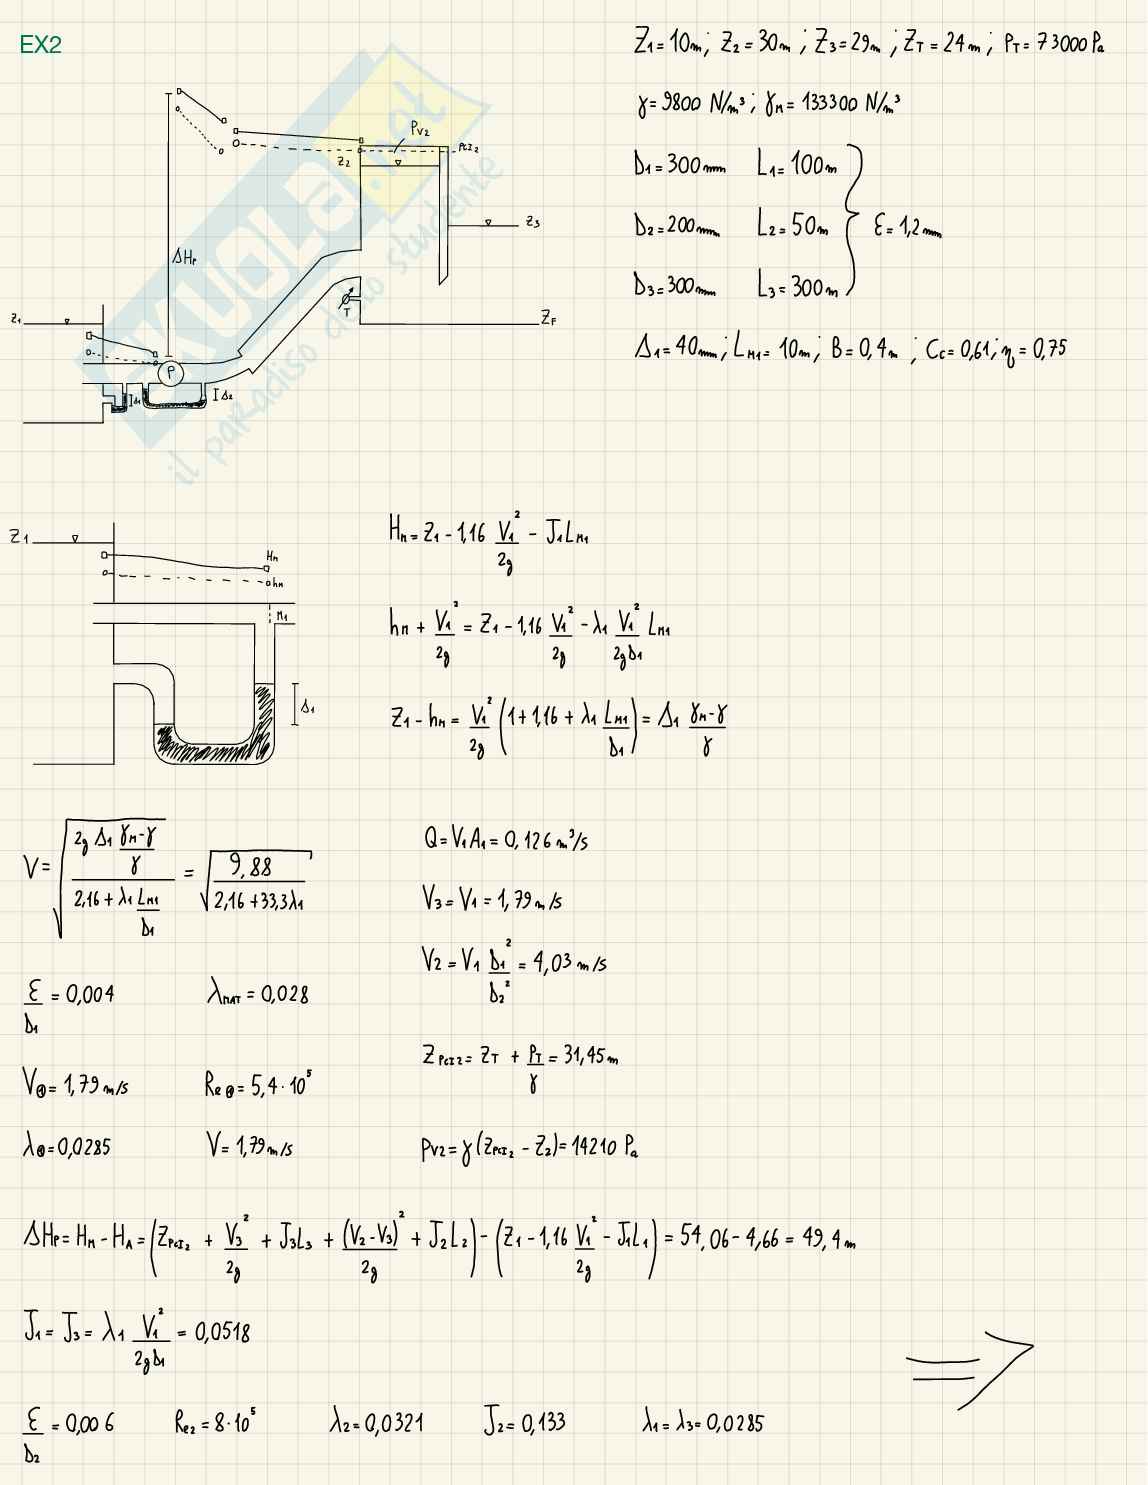 EX2
Z1 = 10m ; Z2 = 30m ; Z3 = 29m ; ZT = 24m ; PT = 73000 Pa
γ = 9800 N/m³ ; γm = 133300 N/m³
D1 = 300mm L1 = 100m
D2 = 200mm L2 = 50m ε = 1,2mm
D3 = 300mm L3 = 300m
Δ1 = 40mm ; LM1 = 10m ; B = 0,4m ; Cc = 0,61 ; η = 0,75
Pv2
PCI2
Z2
Z3
ΔHp
T
ZF
Z1
P
Δ1
Δ2
SKUOLA.net
il paradiso dello studente
Z1
Hm
hm
M1
Δ1
Hm = Z1 - 1,16 V1²/2g - J1 LM1
hm + V1²/2g = Z1 - 1,16 V1²/2g - λ1 V1²/2gD1 LM1
Z1 - hm = V1²/2g (1 + 1,16 + λ1 LM1/D1) = Δ1 (γm-γ)/γ
V = √(2g Δ1 (γm-γ)/γ / (2,16 + λ1 LM1/D1)) = √(9,88 / (2,16 + 33,3λ1))
ε/D1 = 0,004 λMAT = 0,028
V⊕ = 1,79 m/s Re⊕ = 5,4·10⁵
λ⊕ = 0,0285 V = 1,79 m/s
Q = V1 A1 = 0,126 m³/s
V3 = V1 = 1,79 m/s
V2 = V1 D1²/D2² = 4,03 m/s
ZPCI2 = ZT + PT/γ = 31,45 m
Pv2 = γ (ZPCI2 - Z2) = 14210 Pa
ΔHp = HM - HA = (ZPCI2 + V3²/2g + J3L3 + (V2-V3)²/2g + J2L2) - (Z1 - 1,16 V1²/2g - J1L1) = 54,06 - 4,66 = 49,4 m
J1 = J3 = λ1 V1²/2gD1 = 0,0518
ε/D2 = 0,006 Re2 = 8·10⁵ λ2 = 0,0321 J2 = 0,133 λ1 = λ3 = 0,0285